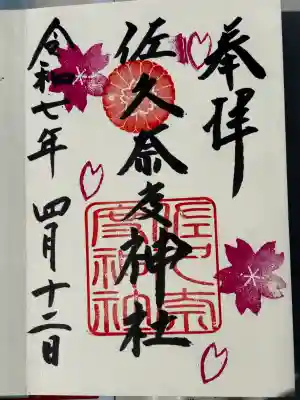 奉拝
佐久奈度神社
令和七年 四月十二日
佐久奈
度神社